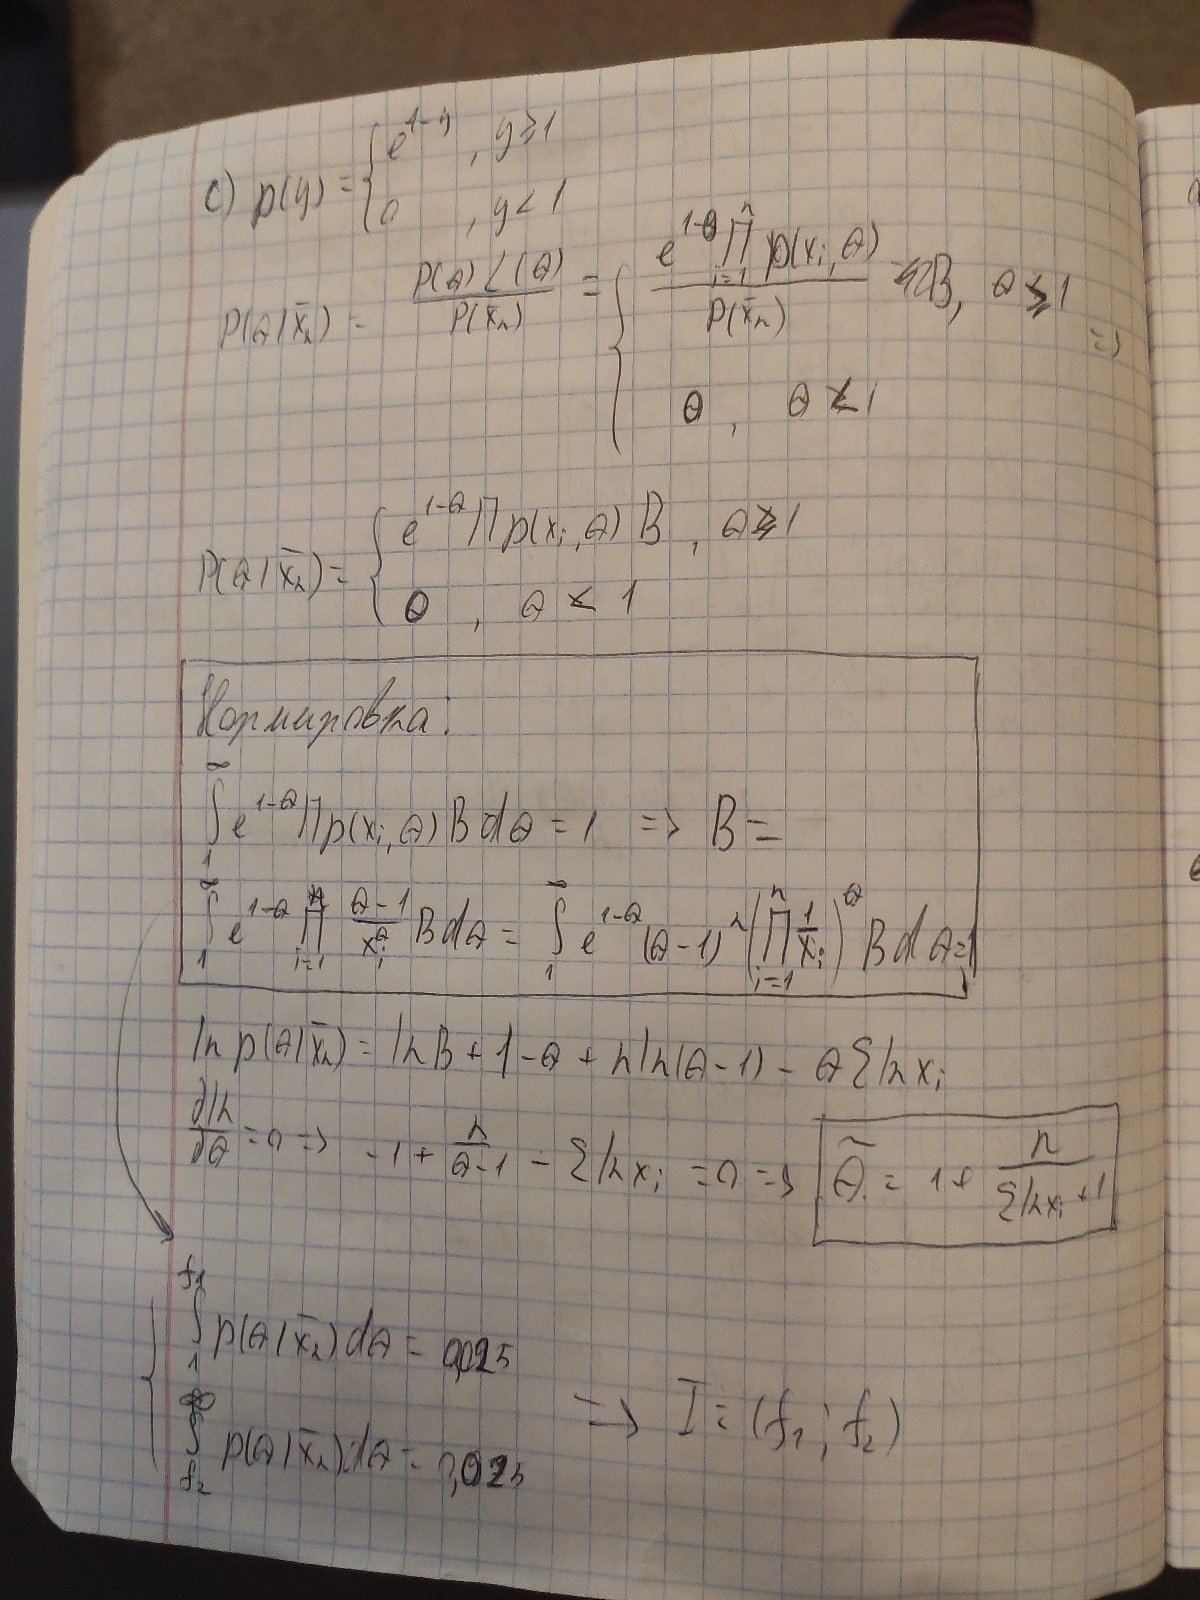 c) p(y) = { e^{1-y}, y ≥ 1
0, y < 1
P(θ|x̄ₙ) = P(θ)L(θ) / P(x̄ₙ) = { e^{1-θ} ∏_{i=1}^{n} p(xᵢ,θ) / P(x̄ₙ) B, θ ≥ 1 =>
0, θ < 1
P(θ|x̄ₙ) = { e^{1-θ} ∏ p(xᵢ,θ) B, θ ≥ 1
0, θ < 1
Нормировка:
∫_1^∞ e^{1-θ} ∏ p(xᵢ,θ) B dθ = 1 => B =
∫_1^∞ e^{1-θ} ∏_{i=1}^{n} (θ-1)/xᵢ^θ B dθ = ∫_1^∞ e^{1-θ} (θ-1)^n (∏_{i=1}^{n} 1/xᵢ)^θ B dθ = 1
ln p(θ|x̄ₙ) = ln B + 1 - θ + n ln(θ-1) - θ Σ ln xᵢ
∂ln/∂θ = 0 => -1 + n/(θ-1) - Σ ln xᵢ = 0 => θ̃ = 1 + n/(Σ ln xᵢ + 1)
{ ∫_1^{f₁} p(θ|x̄ₙ) dθ = 0,025
∫_{f₂}^∞ p(θ|x̄ₙ) dθ = 0,025 => I = (f₁; f₂)